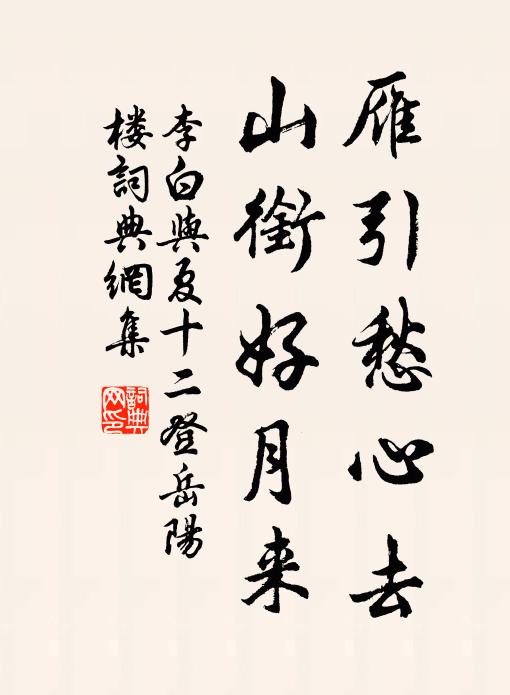 雁引愁心去
山銜好月来
李白與夏十二登岳陽
楼詞典網集
詞典
网印